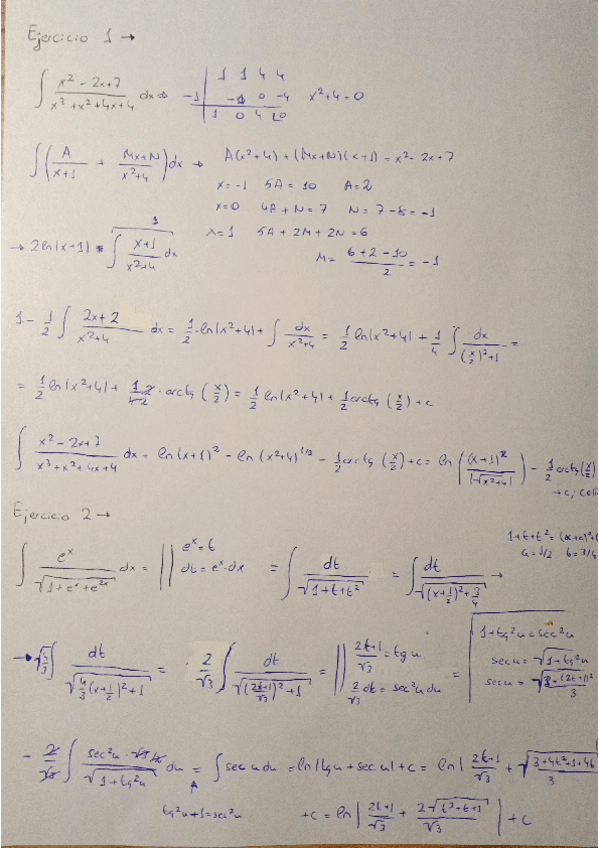 Ejercicio 1 →
∫ (x² - 2x+7)/(x³+x²+4x+4) dx ⇒ -1 | 1 1 4 4
-1 0 -4 x²+4=0
1 0 4 |0
∫ (A/(x+1) + (Mx+N)/(x²+4)) dx → A(x²+4) + (Mx+N)(x+1) = x² - 2x+7
x=-1 5A = 10 A=2
x=0 4A+N=7 N= 7-8=-1
x=1 5A + 2M + 2N = 6
1
→ 2 ln|x+1| - ∫ (x+1)/(x²+4) dx
M= (6+2-10)/2 = -1
1- 1/2 ∫ (2x+2)/(x²+4) dx = 1/2 ln|x²+4| + ∫ dx/(x²+4) = 1/2 ln|x²+4| + 1/4 ∫ dx/((x/2)²+1) =
= 1/2 ln|x²+4| + (1·2)/(4·2) · arctg (x/2) = 1/2 ln|x²+4| + 1/2 arctg (x/2) + c
∫ (x²-2x+7)/(x³+x²+4x+4) dx = ln(x+1)² - ln(x²+4)^(1/2) - 1/2 arctg (x/2) + c = ln |(x+1)²/√(x²+4)| - 1/2 arctg (x/2)
→ c;
Ejercicio 2 →
1+t+t² = (x+a)²+
a=1/2 b=3/4
∫ eˣ/√(1+eˣ+e²ˣ) dx = || eˣ=t
dt = eˣ·dx = ∫ dt/√(1+t+t²) = ∫ dt/√((x+1/2)²+3/4) →
→ √(4/3) ∫ dt/√(4/3 (x+1/2)²+1) = 2/√3 ∫ dt/√(((2t+1)/√3)²+1) = || (2t+1)/√3 = tg u
2/√3 dt = sec²u du =
1+tg²u = sec²u
sec u = √(1+tg²u)
- 2/√3 ∫ (sec²u · √3/2)/√(1+tg²u) du = ∫ sec u du = ln|tg u + sec u| + c = ln | (2t+1)/√3 + √((3+4t²+1+4t)/3)
A
tg²u+1=sec²u
+c = ln | (2t+1)/√3 + (2√(t²+t+1))/√3 | + c